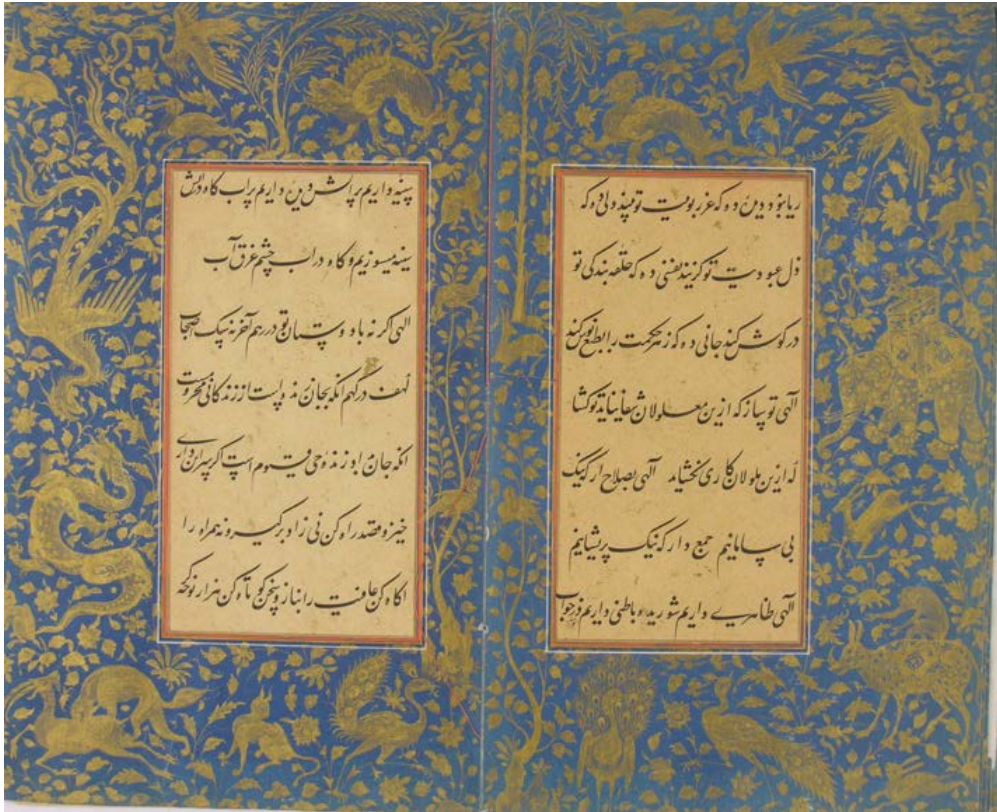 ربانیود دین ده که عز ربوبیت تو بیند دلی ده که
ذل عبودیت تو گزیند نفسی ده که حلقه بندگی تو
در کوش کند جانی ده که زهر حکمت را بطبع نوش کند
الهی تو بساز که ازین معلولان شفا نیاید تو کشا
که ازین ملولان کاری نکشاید الهی بصلاح ار که نیک
بی سامانیم جمع دار که نیک پریشانیم
الهی ظاهری داریم شوریده و باطنی داریم در خواب
سینه داریم پر آتش و دیده داریم پر آب گاه در آتش
سینه میسوزیم و گاه در آب چشم غرق آب
الهی اگر نه با دوستان تو در رهم آخر نه سگ اصحاب
کهف درگهم آنکه بجان زنده است از زندگانی محروم است
آنکه جان او زنده و حی قیوم است اگر سر این داری
خیز و قصد راه کن نی زاد بر گیر و نه همراه را
آگاه کن عافیت را بناز و سخن کوتاه کن هزار